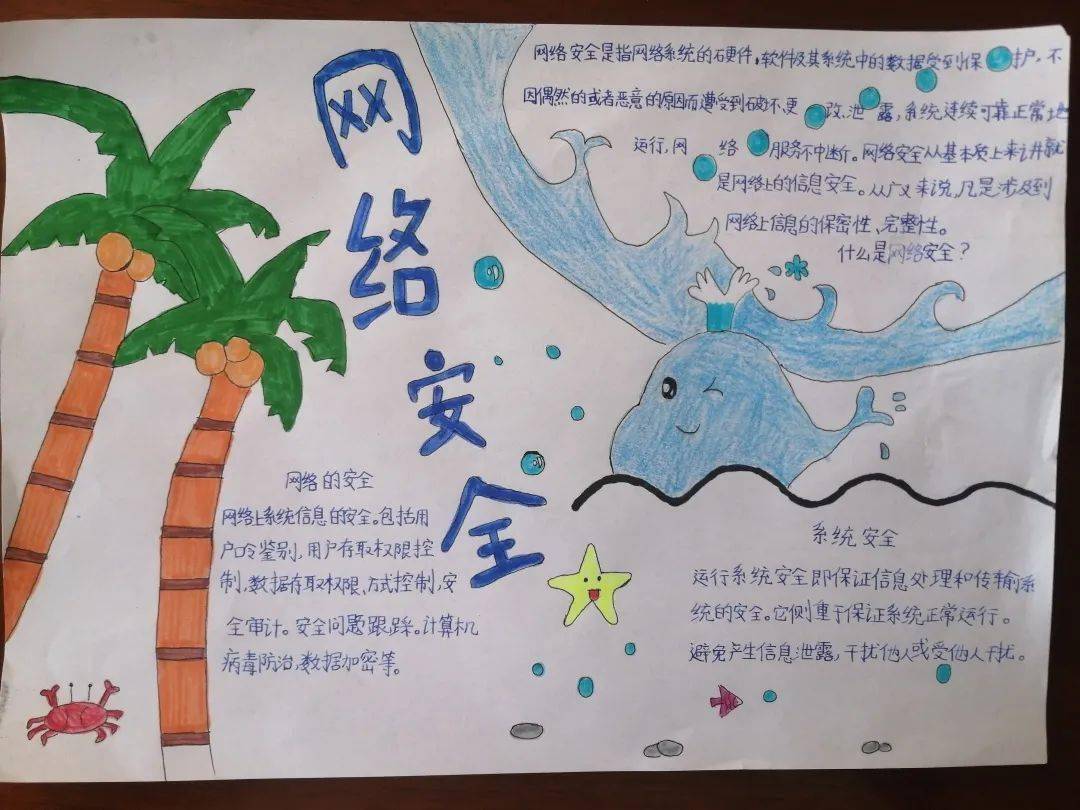 网络安全
网络安全是指网络系统的硬件,软件及其系统中的数据受到保护,不
因偶然的或者恶意的原因而遭受到破不更改.泄露,系统连续可靠正常地
运行,网络服务不中断。网络安全从基本质上来讲就
是网络上的信息安全。从广义来说,凡是涉及到
网络上信息的保密性、完整性。
什么是网络安全?
网络的安全
网络上系统信息的安全。包括用
户口令鉴别,用户存取权限控
制,数据存取权限、方式控制,安
全审计。安全问题跟踪。计算机
病毒防治,数据加密等。
系统安全
运行系统安全即保证信息处理和传输系
统的安全。它侧重于保证系统正常运行。
避免产生信息泄露,干扰他人或受他人干扰。